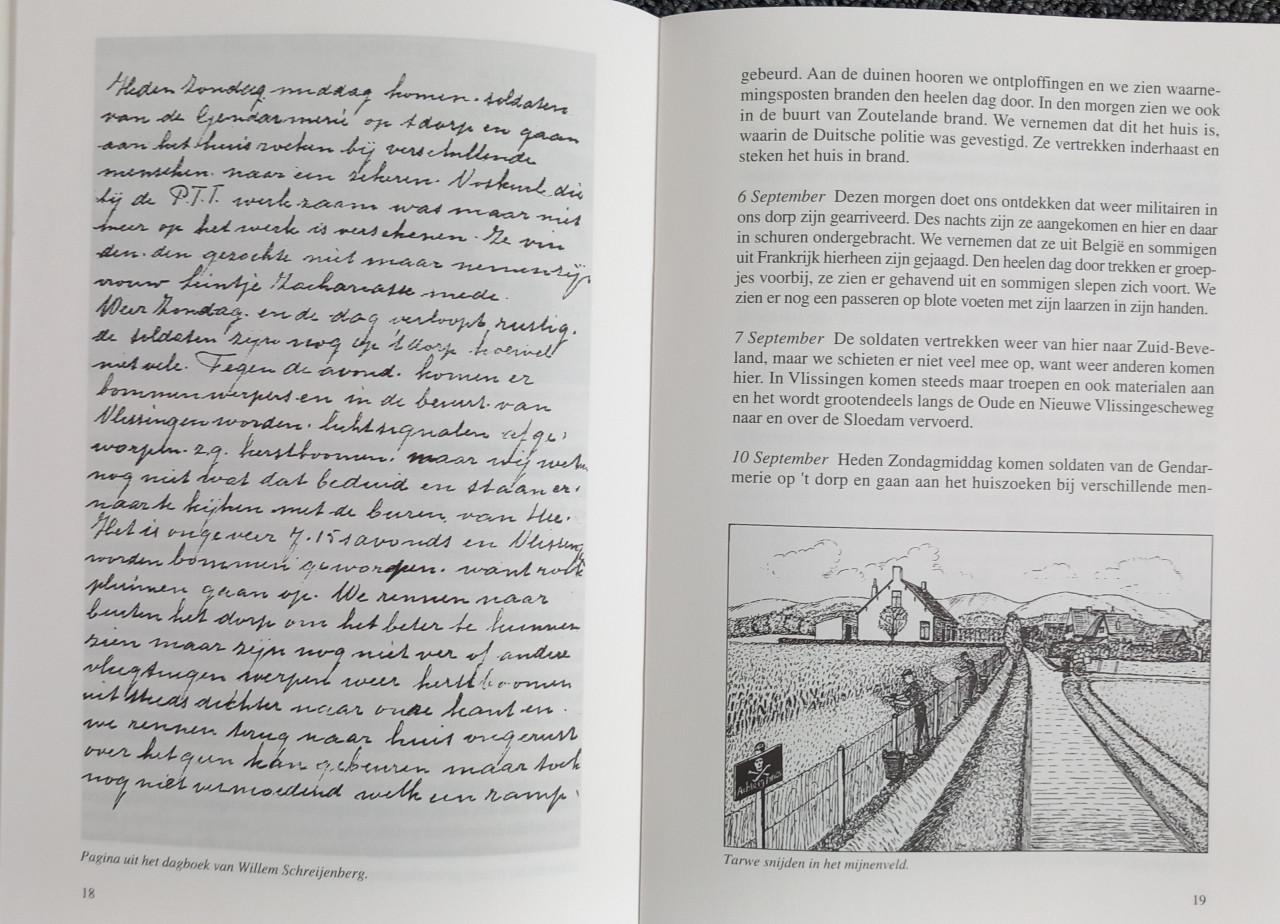 Heden Zondag middag komen soldaten
van de Gendarmerie op t dorp en gaan
aan het huis zoeken bij verschillende
menschen naar een zekeren Voskuil die
bij de P.T.T. werkzaam was maar niet
meer op het werk is verschenen. Ze vin
den den gezochte niet maar nemen zijn
vrouw Leintje Zachariasse mede.
Weer Zondag en de dag verloopt rustig.
de soldaten zijn nog op 't dorp hoewel
niet vele. Tegen de avond komen er
bommenwerpers en in de beurt van
Vlissingen worden lichtsignalen afge
worpen z.g. kerstboomen maar wij weten
nog niet wat dat beduid en staan er
naar te kijken met de buren van Hee.
Het is ongeveer 7.15 s avonds en Vlissing
worden bommen geworpen want rook
pluimen gaan op. We rennen naar
buiten het dorp om het beter te kunnen
zien maar zijn nog niet ver of andere
vliegtuigen werpen weer kerstboomen
uit steeds dichter naar onze kant en
we rennen terug naar huis ongerust
over het geen kan gebeuren maar toch
nog niet vermoedend welk een ramp
Pagina uit het dagboek van Willem Schreijenberg.
18
gebeurd. Aan de duinen hooren we ontploffingen en we zien waarne-
mingsposten branden den heelen dag door. In den morgen zien we ook
in de buurt van Zoutelande brand. We vernemen dat dit het huis is,
waarin de Duitsche politie was gevestigd. Ze vertrekken inderhaast en
steken het huis in brand.
6 September Dezen morgen doet ons ontdekken dat weer militairen in
ons dorp zijn gearriveerd. Des nachts zijn ze aangekomen en hier en daar
in schuren ondergebracht. We vernemen dat ze uit België en sommigen
uit Frankrijk hierheen zijn gejaagd. Den heelen dag door trekken er groep-
jes voorbij, ze zien er gehavend uit en sommigen slepen zich voort. We
zien er nog een passeren op blote voeten met zijn laarzen in zijn handen.
7 September De soldaten vertrekken weer van hier naar Zuid-Beve-
land, maar we schieten er niet veel mee op, want weer anderen komen
hier. In Vlissingen komen steeds maar troepen en ook materialen aan
en het wordt grootendeels langs de Oude en Nieuwe Vlissingescheweg
naar en over de Sloedam vervoerd.
10 September Heden Zondagmiddag komen soldaten van de Gendar-
merie op 't dorp en gaan aan het huiszoeken bij verschillende men-
Tarwe snijden in het mijnenveld.
19